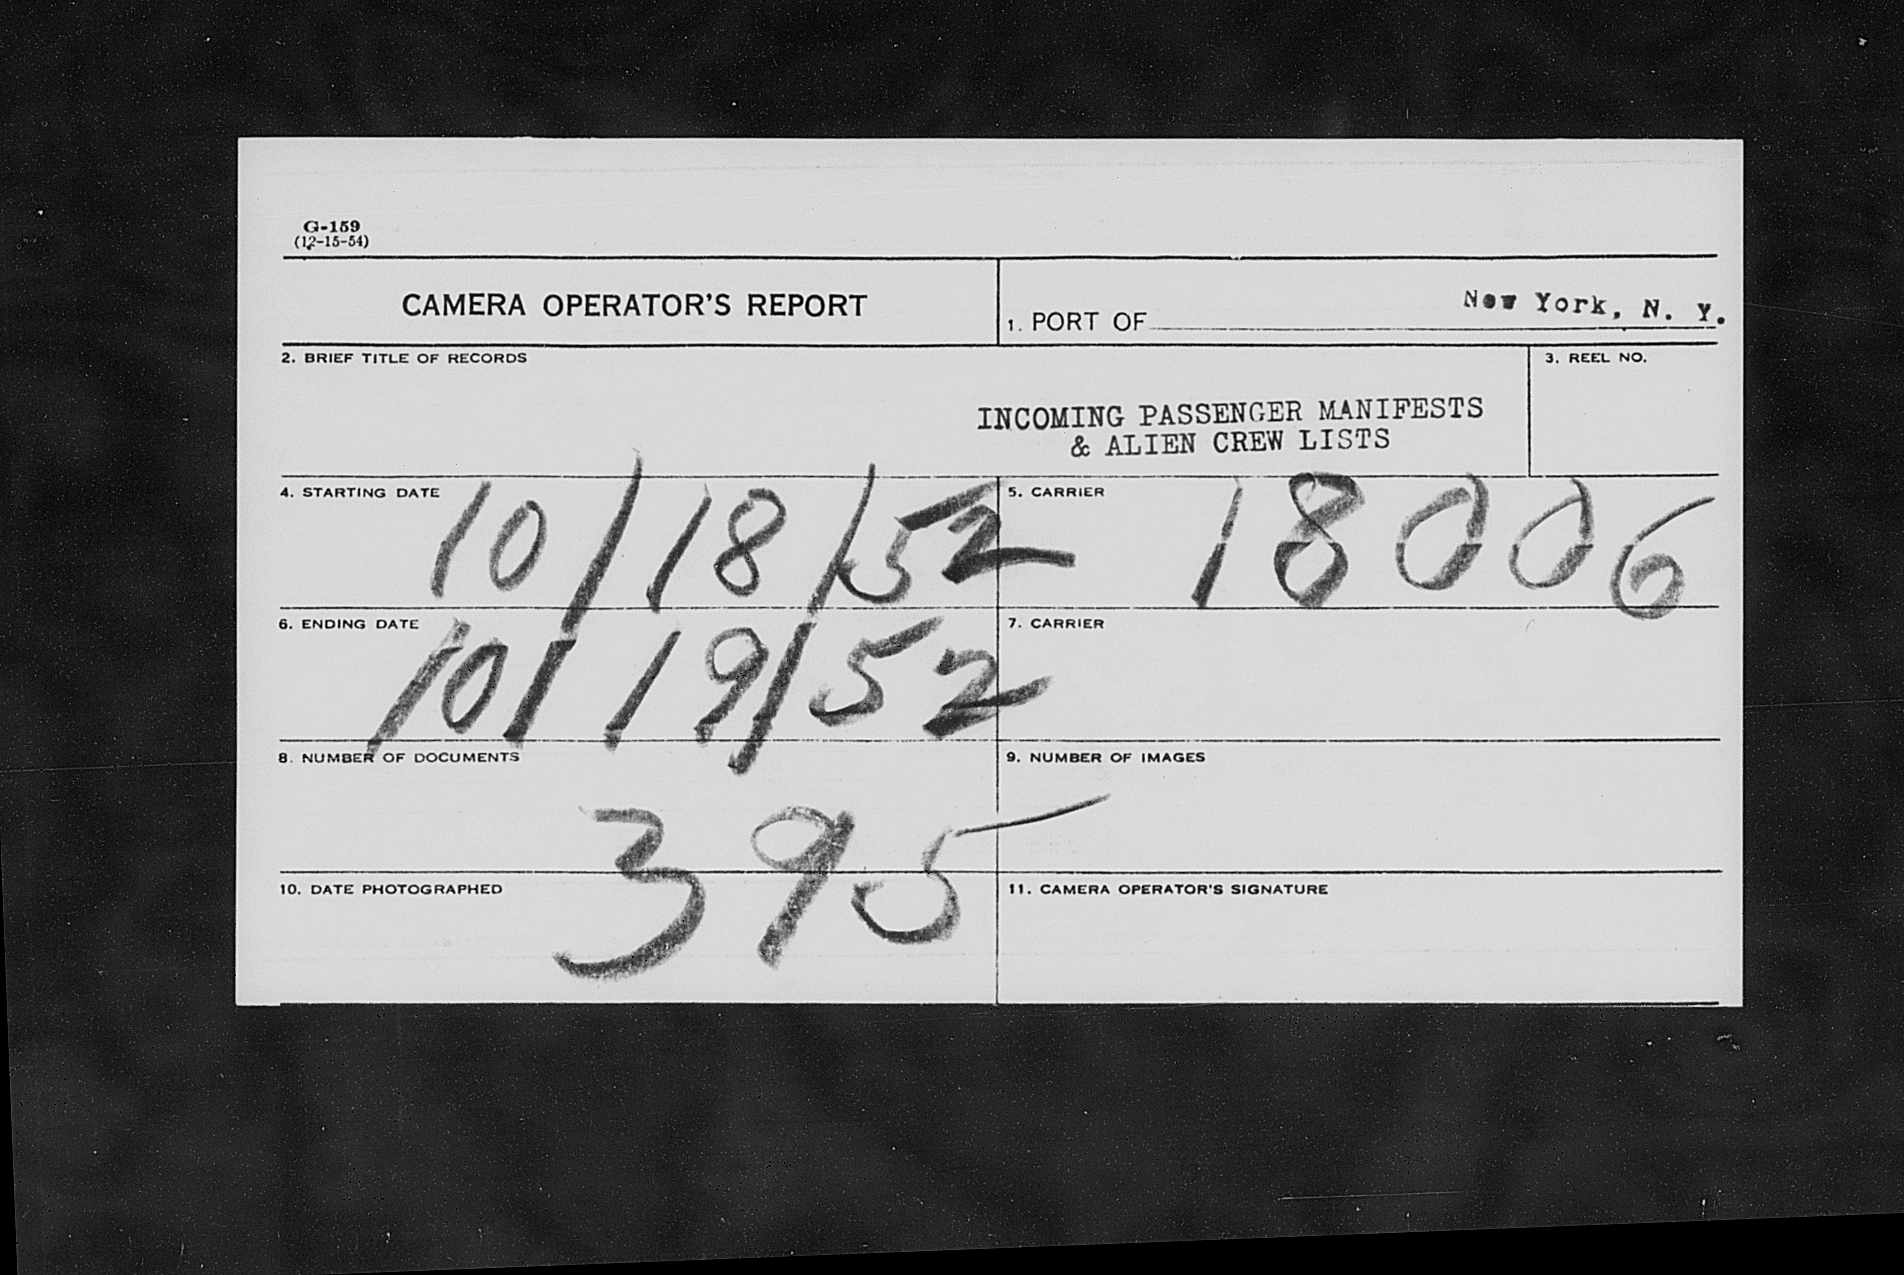 G-159
(12-15-54)
CAMERA OPERATOR'S REPORT
1. PORT OF New York, N. Y.
2. BRIEF TITLE OF RECORDS
3. REEL NO.
INCOMING PASSENGER MANIFESTS
& ALIEN CREW LISTS
4. STARTING DATE 10/18/52
5. CARRIER 18006
6. ENDING DATE 10/19/52
7. CARRIER
8. NUMBER OF DOCUMENTS
9. NUMBER OF IMAGES
395
10. DATE PHOTOGRAPHED
11. CAMERA OPERATOR'S SIGNATURE